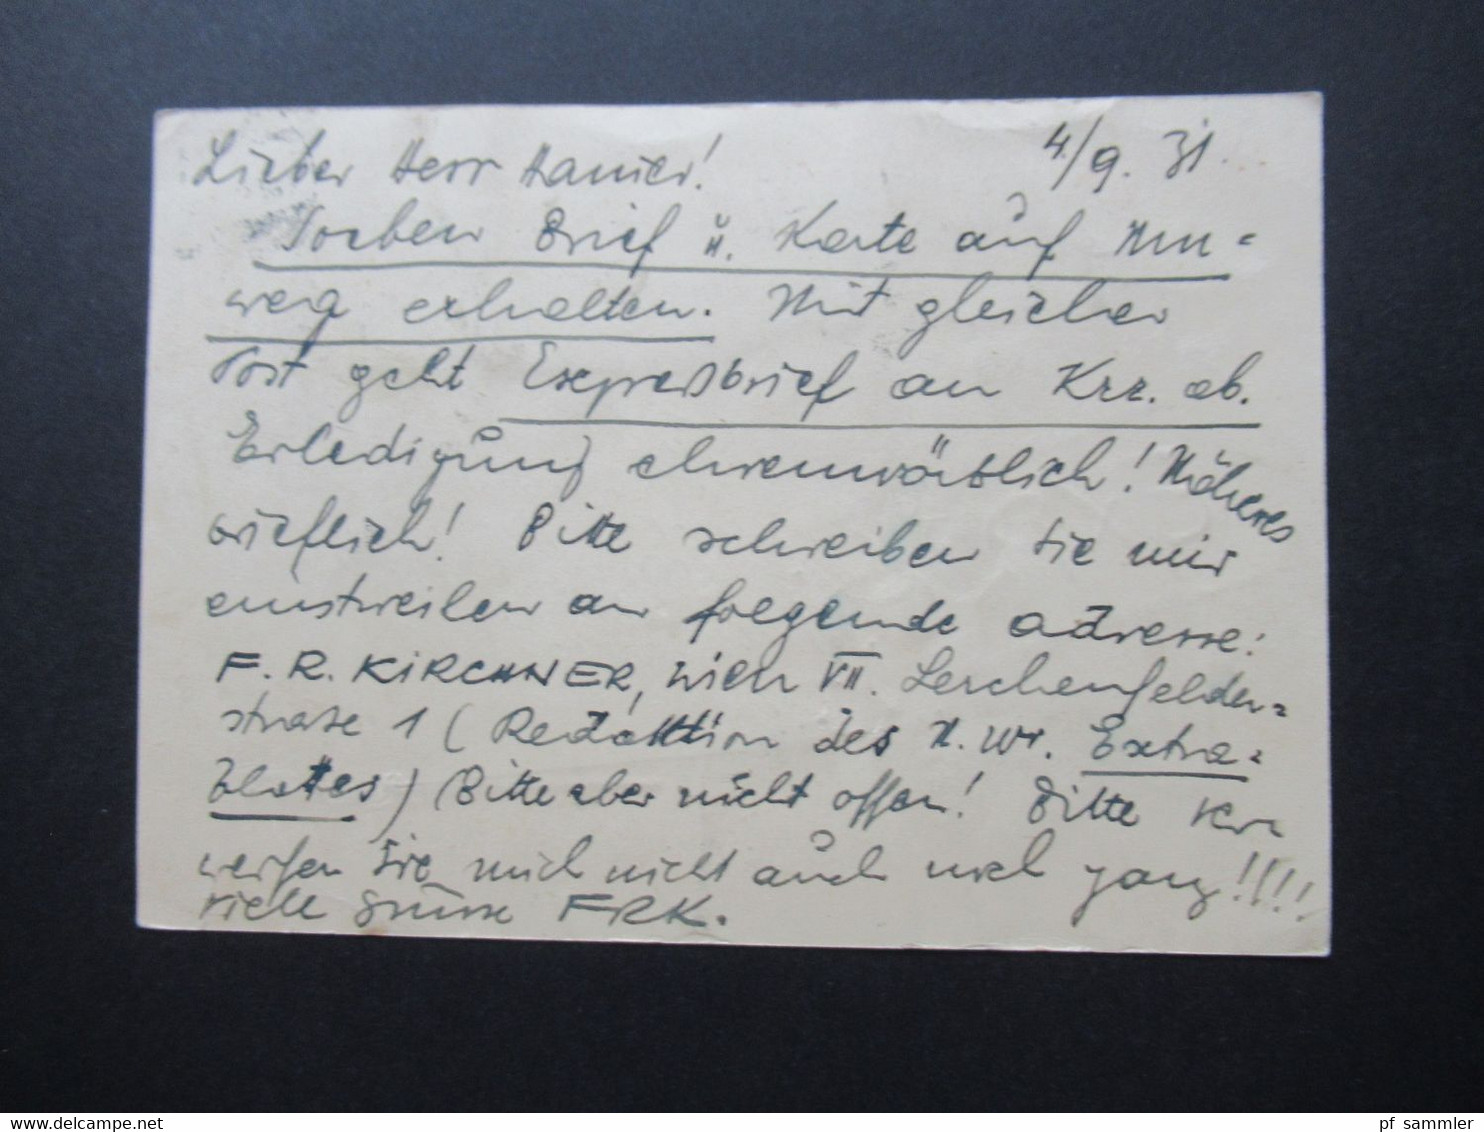 4/9. 31.
Lieber Herr Hamier!
Soeben Brief u. Karte auf Um=
weg erhalten. Mit gleicher
Post geht Expressbrief an Krr. ab.
Erledigung ehrenwörtlich! Näheres
brieflich! Bitte schreiben Sie mir
einstweilen an folgende Adresse:
F. R. KIRCHNER, Wien VII. Lerchenfelder=
strasse 1 (Redaktion des N. Wr. Extra=
blattes) Bitte aber nicht offen! Bitte
werfen Sie mich nicht auch noch ganz!!!!
Viele Grüsse FRK.
© Delcampe - The Marketplace for Collectors / www.delcampe.net
pf_sammler